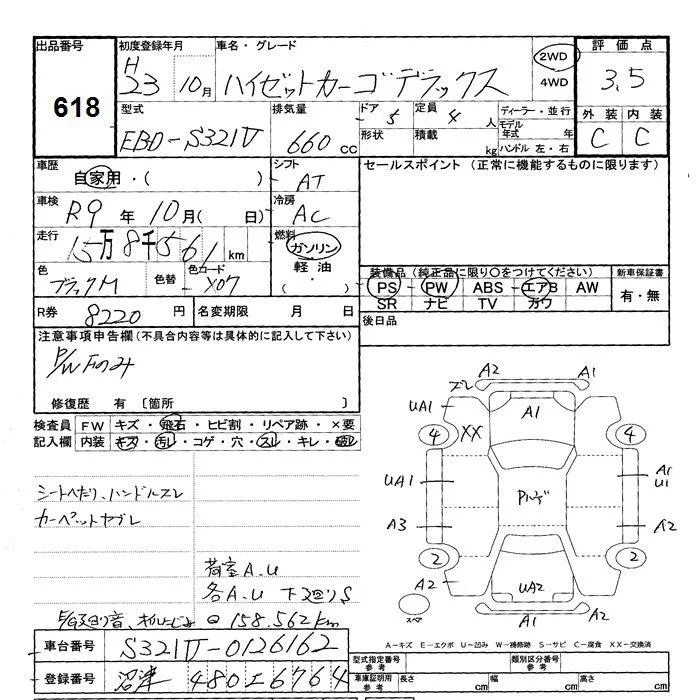 出品番号 初度登録年月 車名・グレード 評価点
618 H23 10月 ハイゼットカーゴデラックス 2WD 4WD 3.5
型式 排気量 ドア 5 定員 4人 ディーラー・並行 外装 内装
EBD-S321V 660cc 形状 積載 kg モデル年式 年 ハンドル 左・右 C C
車歴 自家用・( ) シフト AT セールスポイント (正常に機能するものに限ります)
車検 R9年10月( 日) 冷房 AC
走行 15万8千561km 燃料 ガソリン 軽油 ・( )
色 ブラックM 色替 色コード X07
装備品 (純正品に限り○をつけてください) 新車保証書
PS・PW・ABS・エアB AW 有・無
SR ナビ TV カワ
R券 8220円 名変期限 月 日 後日品
注意事項申告欄 (不具合内容等は具体的に記入して下さい)
P/W Fのみ
修復歴 有 〔箇所 〕
検査員 FW キズ・飛石・ヒビ割・リペア跡・×要
記入欄 内装 キズ・汚レ・コゲ・穴・スレ・キレ・破レ
シートヘたり、ハンドルスレ
カーペットヤブレ
荷室A.U
各A.U 下廻りS
158.562km
A2 A1
ズレ
UA1 A1
4 XX 4
UA1 Pルーフ A1 U1
A3 A2
2 2
A2 UA2 A2
スペア A1 A2
A-キズ E-エクボ U-凹み W-補修跡 S-サビ C-腐食 XX-交換済
車台番号 S321V-0126162
型式指定番号 参考 類別区分番号 参考
登録番号 沼津 480 け 6764
車庫証明用 参考 長さ cm 幅 cm 高さ cm